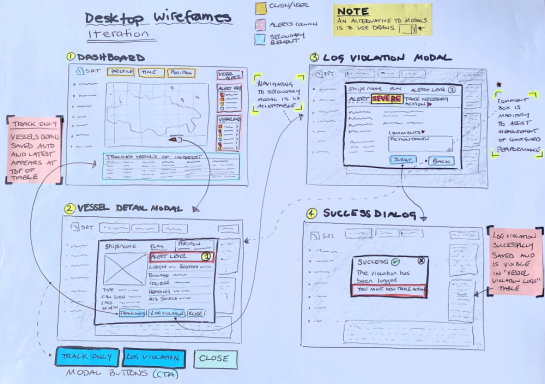 Desktop Wireframes
Iteration
CLICK/USER
ALERTS COLUMN
SECONDARY
NOTE
AN ALTERNATIVE TO MODALS
IS TO USE DRAWS
1 DASHBOARD
SRT
PROFILE
TIME
POSITION
VESSEL
ALERT
TRACKED VESSELS OF INTEREST
NAVIGATING
TO SECONDARY
MODAL IS
ACCEPTABLE
3 LOG VIOLATION MODAL
SRT
SHIPS NAME
ALERT LEVEL 3
ALERT SEVERE TAKE NECESSARY
ACTION
COMMENTS
ACTION TAKEN
SUBMIT
BACK
COMMENT
BOX IS
TO ASSIST
MEASUREMENT
OF
PERFORMANCE
TRACK ONLY
VESSELS
SAVED AUTO
AND LATEST
APPEARS AT
TOP OF
TABLE
2 VESSEL DETAIL MODAL
SRT
SHIPS NAME
FLAG
POSITION
ALERT LEVEL
COURSE
HEADING
TYPE
CALL SIGN
IMO
TRACK ONLY
LOG VIOLATION
CLOSE
4 SUCCESS DIALOG
SRT
SUCCESS
The violation has
been logged
YOU MUST NOW TAKE ACTION
LOG VIOLATION
SUCCESSFULLY
SAVED AND
IS VISIBLE
IN "VESSEL
VIOLATION LOGS"
TABLE
TRACK ONLY
LOG VIOLATION
CLOSE
MODAL BUTTONS (CTA)